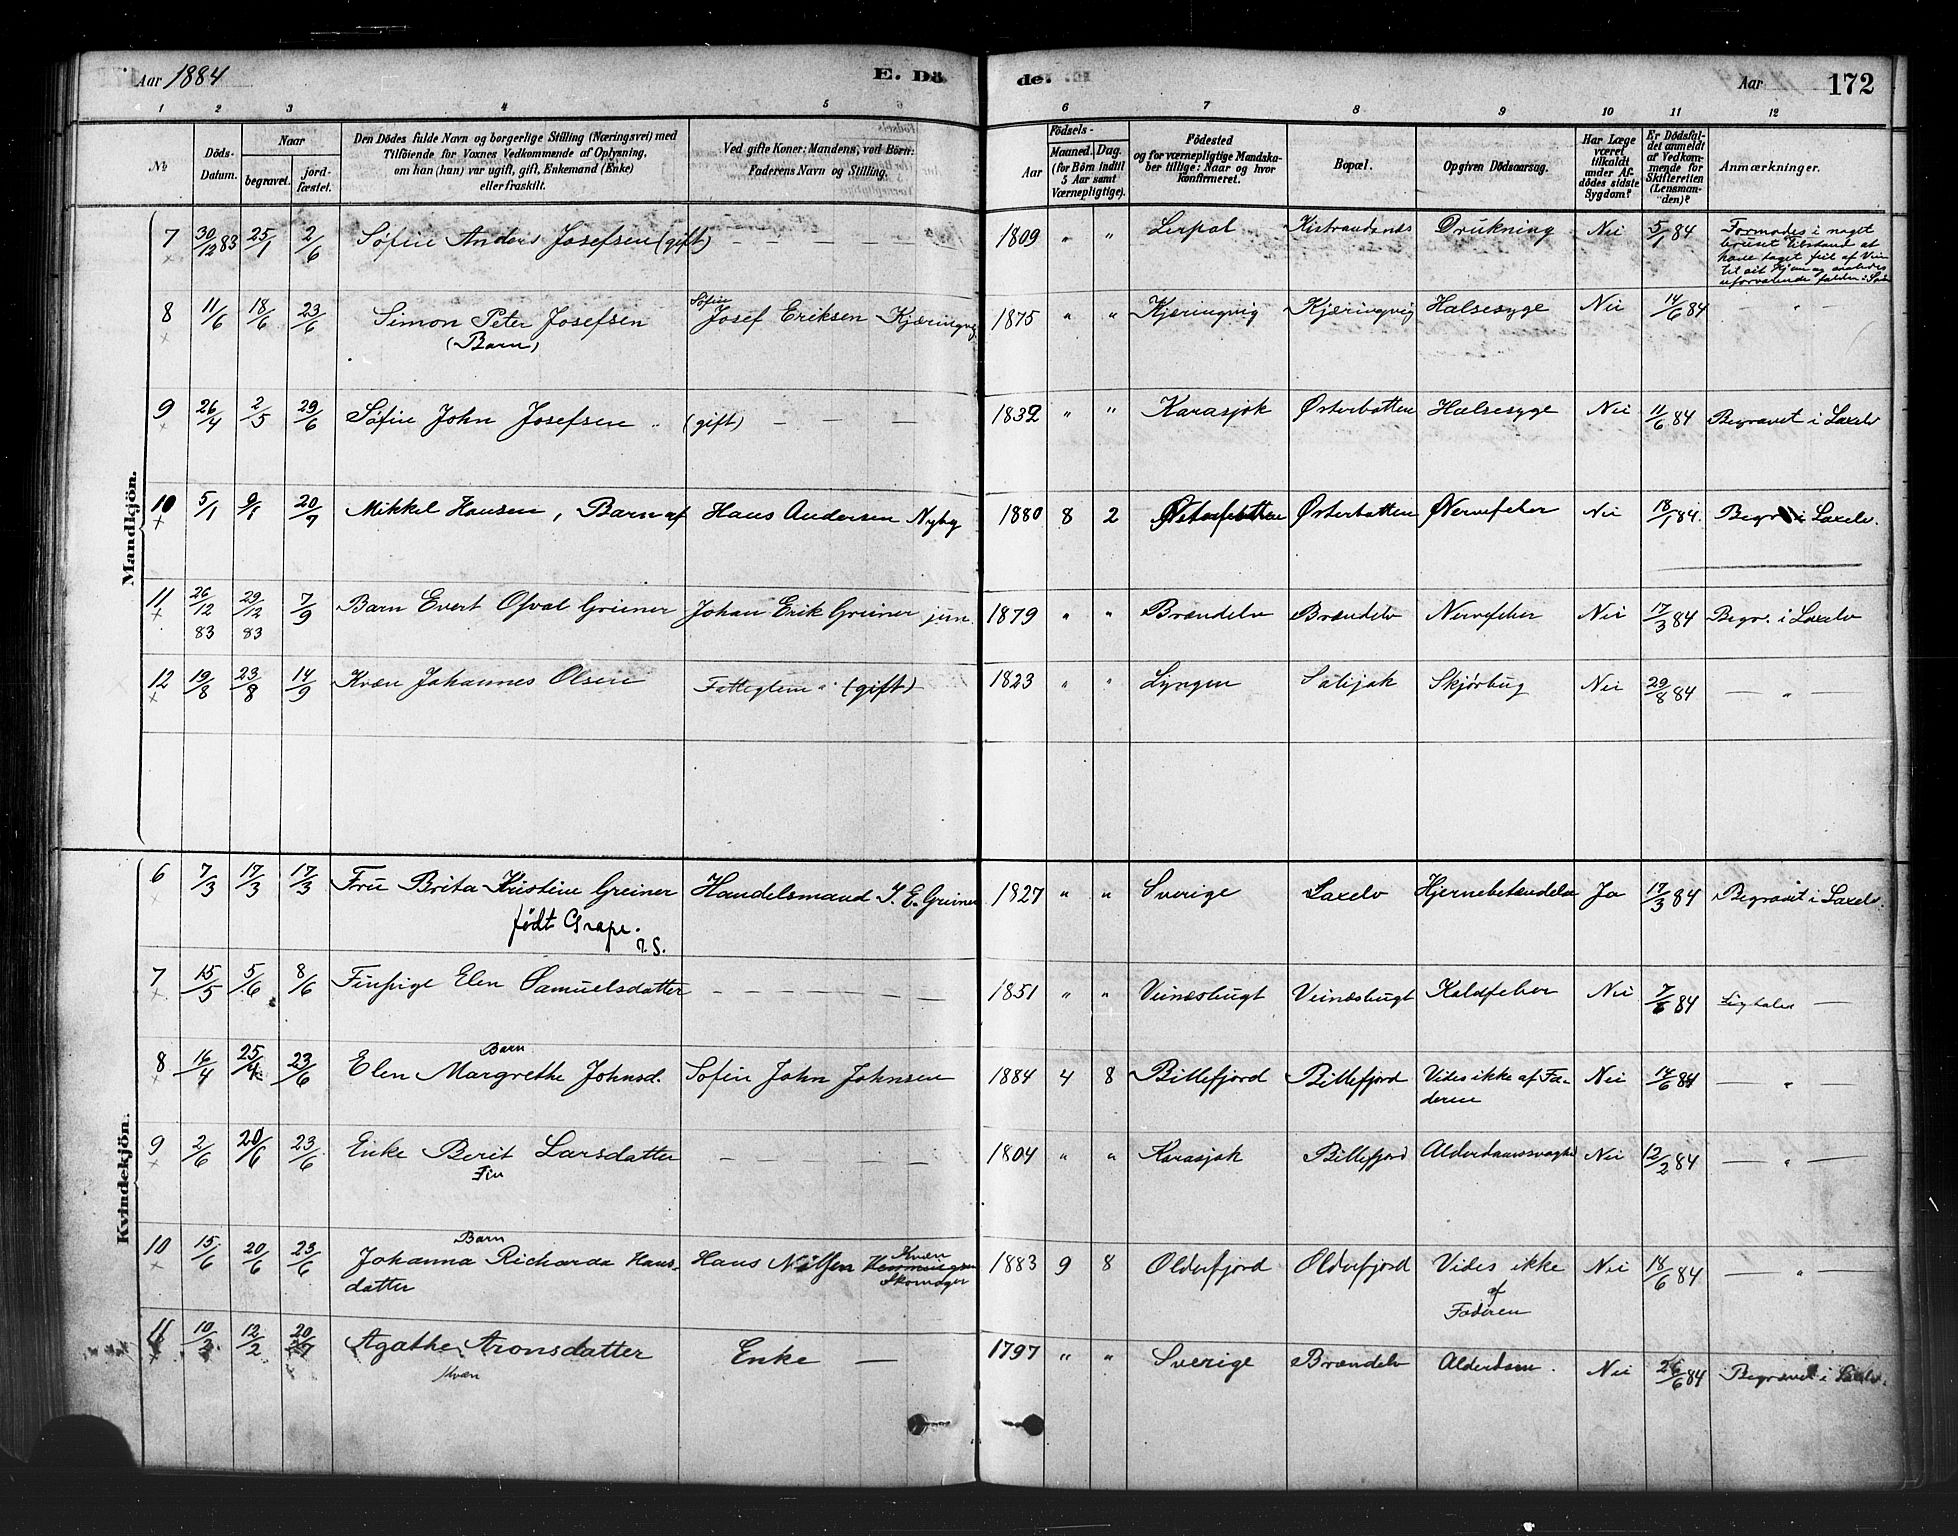 Aar 1884 E. Dö de. Aar 172
1 2 3 4 5 6 7 8 9 10 11 12
No Döds-Datum. Naar begravet. jordfæstet. Den Dödes fulde Navn og borgerlige Stilling (Næringsvei) med Tilföiende for Voxnes Vedkommende af Oplysning, om han (hun) var ugift, gift, Enkemand (Enke) eller fraskilt. Ved gifte Koner: Mandens, ved Börn: Faderens Navn og Stilling. Aar Födsels- Maaned. Dag. (for Börn indtil 5 Aar samt Værnepligtige). Födested og for værnepligtige Mandskaber tillige: Naar og hvor konfirmeret. Bopæl. Opgiven Dödsaarsag. Har Læge været tilkaldt under Afdödes sidste Sygdom? Er Dödsfaldet anmeldt af Vedkommende for Skifteretten (Lensmanden)? Anmærkninger.
Mandkjön.
7 30/12 83 25/1 2/6 Søfin Anders Josefsen (gift) — — — — 1809 " " Lerpol Kistrandsnæs Drukning Nei 5/1 84 Formodes i noget
beruset Tilstand at
have taget feil af Veien
til sit Hjem og saaledes
uforvarende falden i Søen
8 11/6 18/6 23/6 Simon Peter Josefsen Søfin Josef Eriksen Kjæringvig 1875 " " Kjæringvig Kjæringvig Halsesyge Nei 14/6 84 "
(Barn)
9 26/4 2/5 29/6 Søfin John Josefsen (gift) — — — 1832 " " Karasjok Østerbotten Halsesyge Nei 11/6 84 Begravet i Laxelv
10 5/1 9/1 20/7 Mikkel Hansen, Barn af Hans Andersen Nybg 1880 8 2 Østerbotten Østerbotten Nervefeber Nei 18/1 84. Begr. i Laxelv.
11 26/12 83 29/12 83 7/9 Barn Evert Osval Greiner Johan Erik Greiner jun. 1879 " " Brændelv Brændelv Nervefeber Nei 17/3 84 Begr. i Laxelv
12 19/8 23/8 14/9 Kvæn Johannes Olsen Fattiglem (gift) 1823 " " Lyngen Skjørbug Nei 29/8 84 — " —
Kvindekjön.
6 7/3 17/3 17/3 Fru Brita Kristine Greiner Handelsmand J. E. Greiner 1827 " " Sverige Laxelv Hjernebetændelse Ja 17/3 84 Begravet i Laxelv.
født Grape.
7 15/5 5/6 8/6 Finpige Elen Samuelsdatter — — — — — 1851 " " Veinæsbugt Veinæsbugt Koldfeber Nei 7/6 84 Ligtale —
8 16/4 25/4 23/6 Barn Elen Margrethe Johnsd. Søfin John Johnsen 1884 4 8 Billefjord Billefjord Vides ikke af Faderen Nei 14/6 84 — " —
9 2/6 20/6 23/6 Enke Berit Larsdatter — — — — 1804 " " Karasjok Billefjord Alderdomssvaghed Nei 12/2 84 — " —
Fin
10 15/6 20/6 23/6 Barn Johanna Richarda Hansdatter Hans Nilsen Kvæn Skomager 1883 9 8 Olderfjord Olderfjord Vides ikke af Faderen Nei 18/6 84 — " —
11 10/2 12/2 20/7 Agathe Aronsdatter Enke — 1797 " " Sverige Brændelv Alderdom. Nei 26/6 84 Begravet i Laxelv.
Kvæn